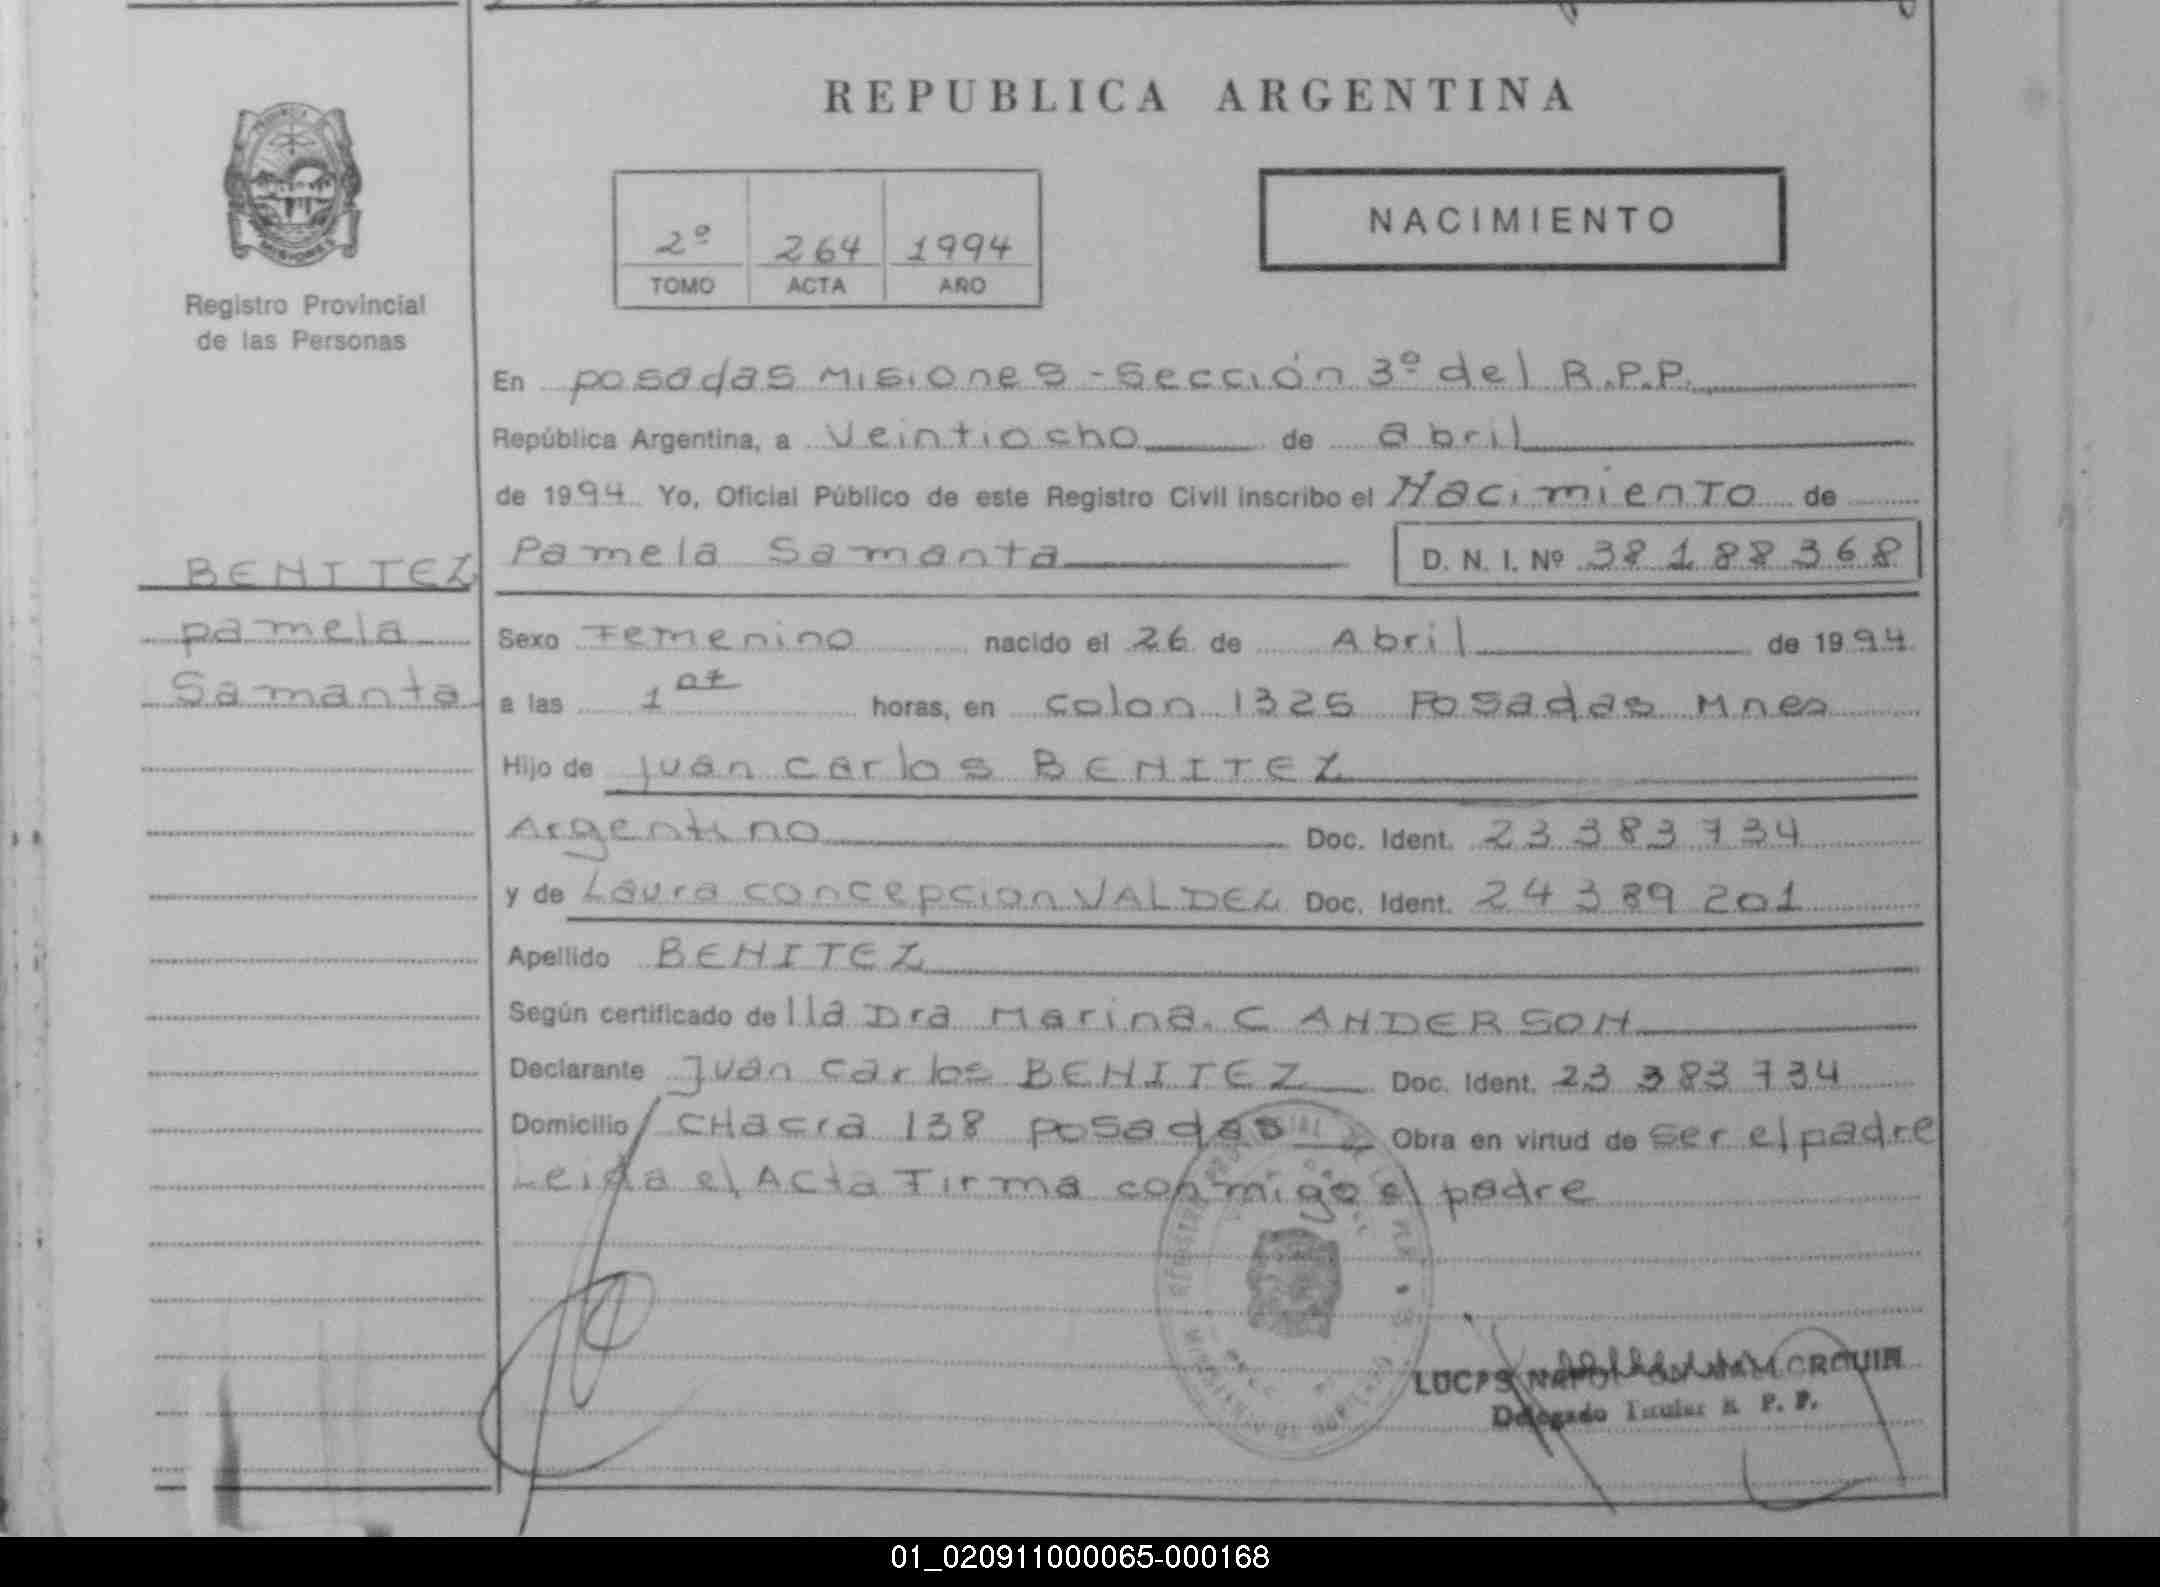 REPUBLICA ARGENTINA
NACIMIENTO
2º 264 1994
TOMO ACTA AÑO
Registro Provincial
de las Personas
En posadas Misiones - Sección 3º del R.P.P.
República Argentina, a Veintiocho de abril
de 1994 Yo, Oficial Público de este Registro Civil inscribo el Nacimiento de
Pamela Samanta D. N. I. Nº 38188368
BENITEZ
pamela
Samanta
Sexo Femenino nacido el 26 de Abril de 1994
a las 1 horas, en colon 1325 Posadas Mnes
Hijo de Juan Carlos BENITEZ
Argentino Doc. Ident. 23 383 734
y de Laura concepcion VALDEZ Doc. Ident. 24 389 201
Apellido BENITEZ
Según certificado de lla Dra Marina. C ANDERSON
Declarante Juan Carlos BENITEZ Doc. Ident. 23 383 734
Domicilio CHacra 138 posadas Obra en virtud de ser el padre
Leida el Acta Firma conmigo el padre
Delegado Titular R. P. P.
01_020911000065-000168